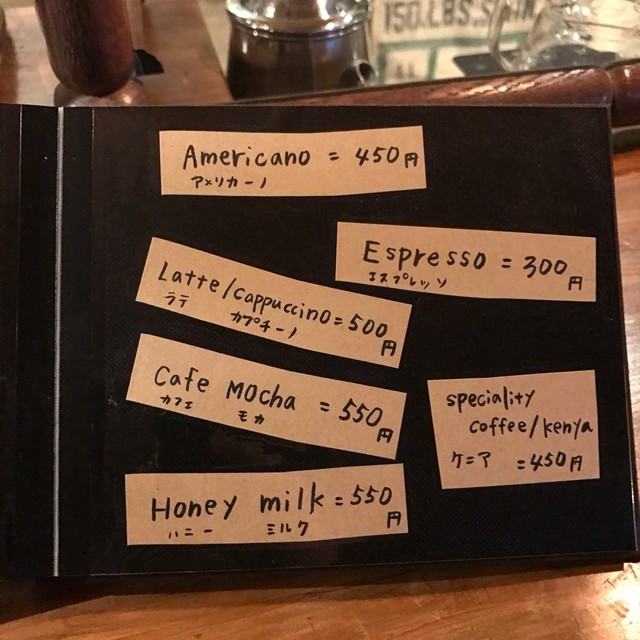 150.LBS.
Americano = 450円
アメリカーノ
Espresso = 300円
エスプレッソ
Latte/cappuccino=500円
ラテ カプチーノ
Cafe Mocha = 550円
カフェ モカ
speciality
coffee/kenya
ケニア =450円
Honey milk = 550円
ハニー ミルク